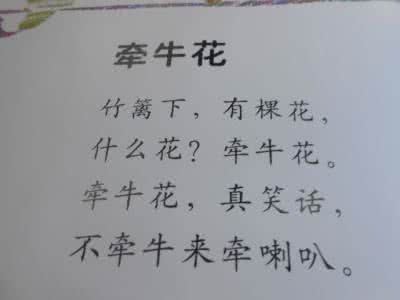 牵牛花
竹篱下，有棵花，
什么花？牵牛花。
牵牛花，真笑话，
不牵牛来牵喇叭。